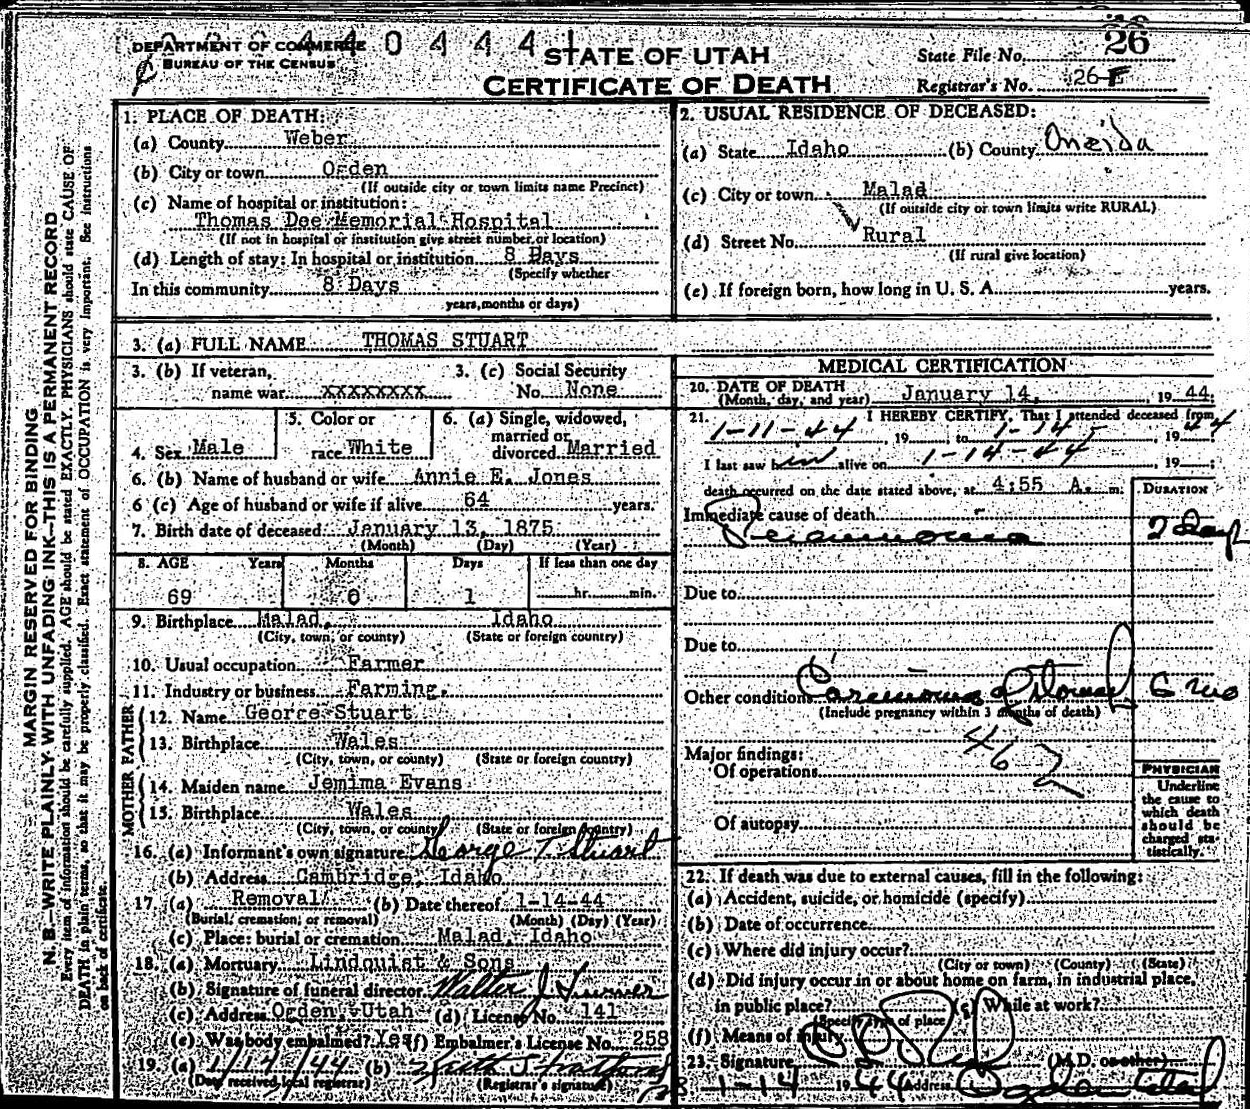 DEPARTMENT OF COMMERCE
BUREAU OF THE CENSUS
STATE OF UTAH
CERTIFICATE OF DEATH
26
State File No.
Registrar's No. 26-F
MARGIN RESERVED FOR BINDING
N. B.—WRITE PLAINLY WITH UNFADING INK—THIS IS A PERMANENT RECORD
Every item of information should be carefully supplied. AGE should be stated EXACTLY. PHYSICIANS should state CAUSE OF
DEATH in plain terms, so that it may be properly classified. Exact statement of OCCUPATION is very important. See instructions
on back of certificate.
1. PLACE OF DEATH:
(a) County Weber
(b) City or town Ogden
(If outside city or town limits name Precinct)
(c) Name of hospital or institution:
Thomas Dee Memorial Hospital
(If not in hospital or institution give street number or location)
(d) Length of stay: In hospital or institution 8 Days
(Specify whether
In this community 8 Days
years, months or days)
2. USUAL RESIDENCE OF DECEASED:
(a) State Idaho (b) County Oneida
(c) City or town Malad
(If outside city or town limits write RURAL)
(d) Street No. Rural
(If rural give location)
(e) If foreign born, how long in U. S. A. years.
3. (a) FULL NAME THOMAS STUART
3. (b) If veteran, 3. (c) Social Security
name war xxxxxxxx No. None
5. Color or 6. (a) Single, widowed,
married or
4. Sex Male race White divorced Married
6. (b) Name of husband or wife Annie E. Jones
6 (c) Age of husband or wife if alive 64 years.
7. Birth date of deceased January 13, 1875
(Month) (Day) (Year)
8. AGE Years Months Days If less than one day
69 0 1 hr. min.
9. Birthplace Malad, Idaho
(City, town, or county) (State or foreign country)
10. Usual occupation Farmer
11. Industry or business Farming.
FATHER
12. Name George Stuart
13. Birthplace Wales
(City, town, or county) (State or foreign country)
MOTHER
14. Maiden name Jemima Evans
15. Birthplace Wales
(City, town, or county) (State or foreign country)
16. (a) Informant's own signature George T. Stuart
(b) Address Cambridge, Idaho
17. (a) Removal (b) Date thereof 1-14-44
(Burial, cremation, or removal) (Month) (Day) (Year)
(c) Place: burial or cremation Malad, Idaho
18. (a) Mortuary Lindquist & Sons
(b) Signature of funeral director Walter J.
(c) Address Ogden, Utah (d) License No. 141
(e) Was body embalmed? Yes (f) Embalmer's License No. 258
19. (a) 1/14/44 (b)
(Date received local registrar) (Registrar's signature)
MEDICAL CERTIFICATION
20. DATE OF DEATH
(Month, day, and year) January 14, 19 44
21. I HEREBY CERTIFY, That I attended deceased from
1-11-44, 19 to 1-14-, 19 44
I last saw him alive on 1-14-44, 19 ;
death occurred on the date stated above, at 4:55 A. m.
DURATION
Immediate cause of death
Pneumonia 2 days
Due to
Due to
Other conditions Carcinoma of Stomach 6 mo
(Include pregnancy within 3 months of death)
46
Major findings:
Of operations
Of autopsy
PHYSICIAN
Underline
the cause to
which death
should be
charged sta-
tistically.
22. If death was due to external causes, fill in the following:
(a) Accident, suicide, or homicide (specify)
(b) Date of occurrence
(c) Where did injury occur?
(City or town) (County) (State)
(d) Did injury occur in or about home on farm, in industrial place,
in public place? (e) While at work?
(Specify type of place)
(f) Means of injury
23. Signature (M.D. or other)
1-14 19 44 Address Ogden Utah